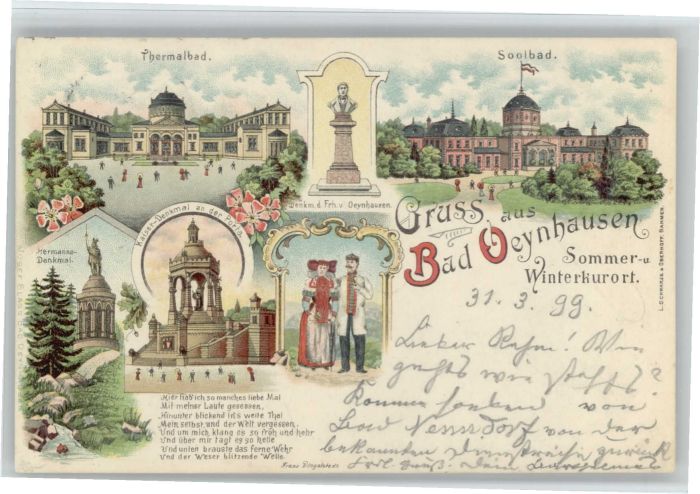 Thermalbad.
Soolbad.
Denkm. d. Frh. v. Oeynhausen.
Gruss aus
Bad Oeynhausen
Sommer- u.
Winterkurort.
L. SCHWARZE & OBERHOFF, BARMEN.
Hermanns-
Denkmal.
Kaiser-Denkmal an der Porta.
31. 3. 99.
Lieber Rehm! Wie
gehts wie stehts?
Komme soeben von
Bad Nenndorf von der
bekannten zurück
Hier hab ich so manches liebe Mal
Mit meiner Laute gesessen,
Hinunter blickend in's weite Thal
Mein selbst und der Welt vergessen,
Und um mich klang es so froh und hehr
Und über mir tagt es so helle
Und unten brauste das ferne Wehr
Und der Weser blitzende Welle.
Franz Dingelstedt